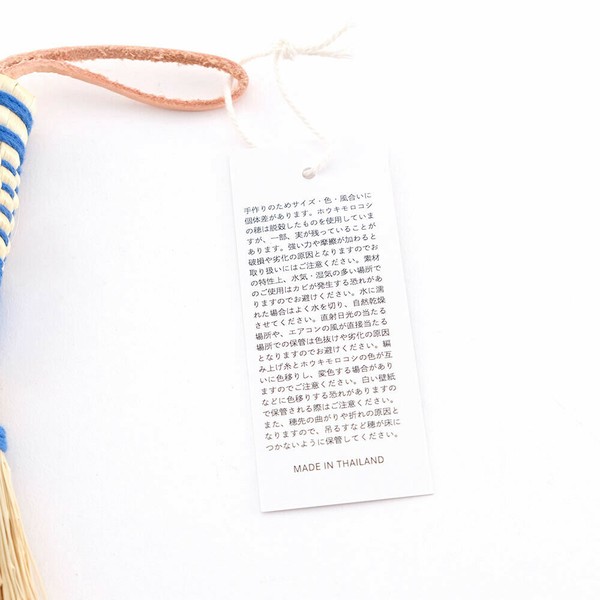 手作りのためサイズ・色・風合いに
個体差があります。ホウキモロコシ
の穂は脱穀したものを使用していま
すが、一部、実が残っていることが
あります。強い力や摩擦が加わると
破損や劣化の原因となりますのでお
取り扱いにはご注意ください。素材
の特性上、水気・湿気の多い場所で
のご使用はカビが発生する恐れがあ
りますのでお避けください。水に濡
れた場合はよく水を切り、自然乾燥
させてください。直射日光の当たる
場所や、エアコンの風が直接当たる
場所での保管は色抜けや劣化の原因
となりますのでお避けください。編
み上げ糸とホウキモロコシの色が互
いに色移りし、変色する場合があり
ますのでご注意ください。白い壁紙
などに色移りする恐れがありますの
で保管される際はご注意ください。
また、穂先の曲がりや折れの原因と
なりますので、吊るすなど穂が床に
つかないように保管してください。
MADE IN THAILAND